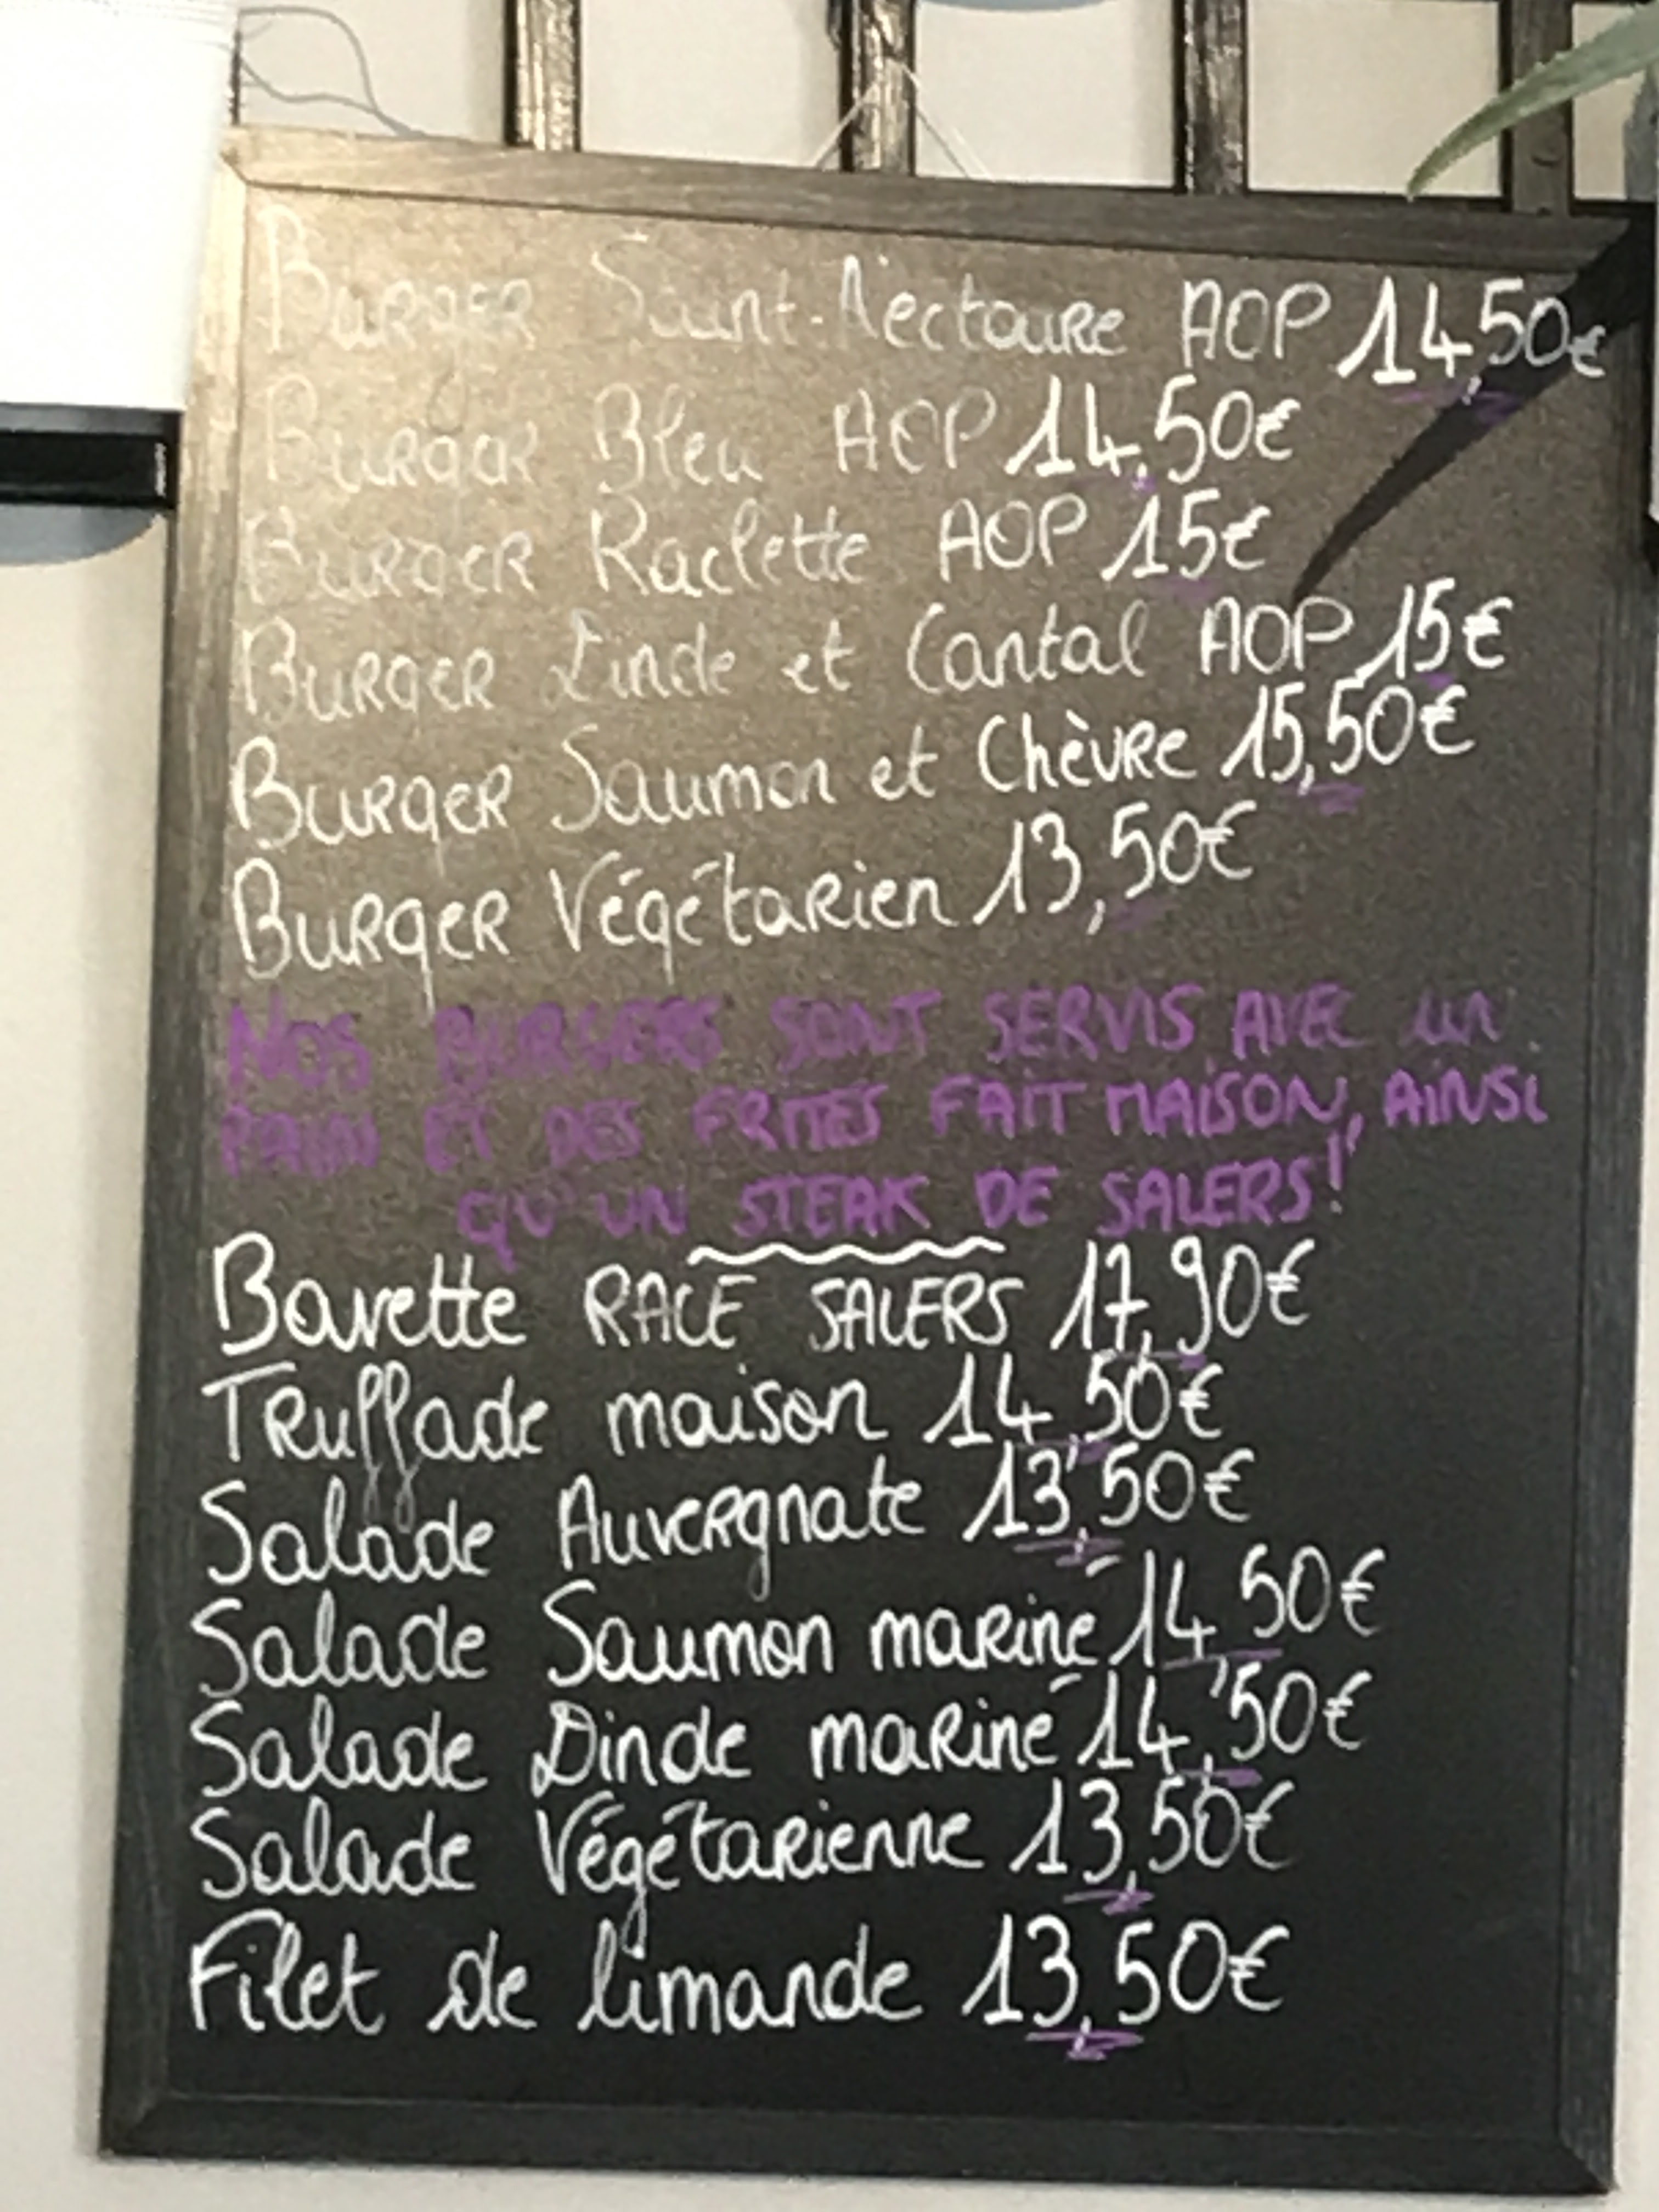 Burger Saint-Nectaire AOP 14,50€
Burger Bleu AOP 14,50€
Burger Raclette AOP 15€
Burger Dinde et Cantal AOP 15€
Burger Saumon et Chèvre 15,50€
Burger Végétarien 13,50€
NOS BURGERS SONT SERVIS AVEC un
PAIN ET DES FRITES FAIT MAISON, AINSI
QU'UN STEAK DE SALERS!
Bavette RACE SALERS 17,90€
Truffade maison 14,50€
Salade Auvergnate 13,50€
Salade Saumon mariné 14,50€
Salade Dinde mariné 14,50€
Salade Végétarienne 13,50€
Filet de limande 13,50€